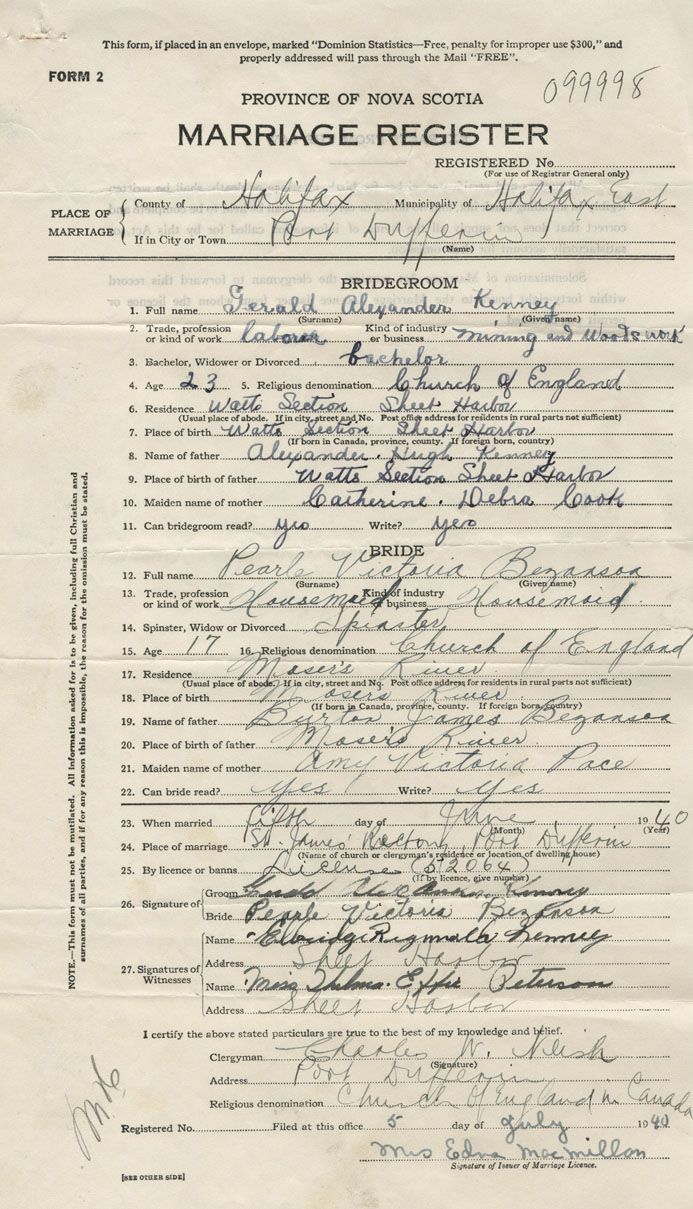 This form, if placed in an envelope, marked "Dominion Statistics—Free, penalty for improper use $300," and
properly addressed will pass through the Mail "FREE".
FORM 2
099998
PROVINCE OF NOVA SCOTIA
MARRIAGE REGISTER
REGISTERED No.
(For use of Registrar General only)
PLACE OF MARRIAGE
County of Halifax Municipality of Halifax East
If in City or Town Port Dufferin
(Name)
BRIDEGROOM
1. Full name Gerald Alexander Kenney
(Surname) (Given name)
2. Trade, profession or kind of work laborer Kind of industry or business mining and Woods work
3. Bachelor, Widower or Divorced bachelor
4. Age 23 5. Religious denomination Church of England
6. Residence Watts Section Sheet Harbor
(Usual place of abode. If in city, street and No. Post office address for residents in rural parts not sufficient)
7. Place of birth Watts Section Sheet Harbor
(If born in Canada, province, county. If foreign born, country)
8. Name of father Alexander. Hugh Kenney
9. Place of birth of father Watts Section Sheet Harbor
10. Maiden name of mother Catherine. Debra Cook
11. Can bridegroom read? yes Write? yes
BRIDE
12. Full name Pearle Victoria Bezanson
(Surname) (Given name)
13. Trade, profession or kind of work Housemaid Kind of industry or business Housemaid
14. Spinster, Widow or Divorced Spinster
15. Age 17 16. Religious denomination Church of England
17. Residence Moser's River
(Usual place of abode. If in city, street and No. Post office address for residents in rural parts not sufficient)
18. Place of birth Moser's River
(If born in Canada, province, county. If foreign born, country)
19. Name of father Burton James Bezanson
20. Place of birth of father Moser's River
21. Maiden name of mother Amy Victoria Pace
22. Can bride read? Yes Write? Yes
23. When married fifth day of June 1940
(Month) (Year)
24. Place of marriage St. James' Rectory, Port Dufferin
(Name of church or clergyman's residence or location of dwelling house)
25. By licence or banns License (52064)
(If by licence, give number)
26. Signature of
Groom Kenney
Bride Pearle Victoria Bezanson
27. Signatures of Witnesses
Name Kenney
Address Sheet Harbor
Name Miss Thelma. Effie Peterson
Address Sheet Harbor
I certify the above stated particulars are true to the best of my knowledge and belief.
Clergyman Charles W. Neish
(Signature)
Address Port Dufferin
Religious denomination Church of England in Canada
Registered No. Filed at this office 5 day of July 1940
Mrs Edna Macmillan
Signature of Issuer of Marriage Licence.
[SEE OTHER SIDE]
NOTE.—This form must not be mutilated. All information asked for is to be given, including full Christian and
surnames of all parties, and if for any reason this is impossible, the reason for the omission must be stated.